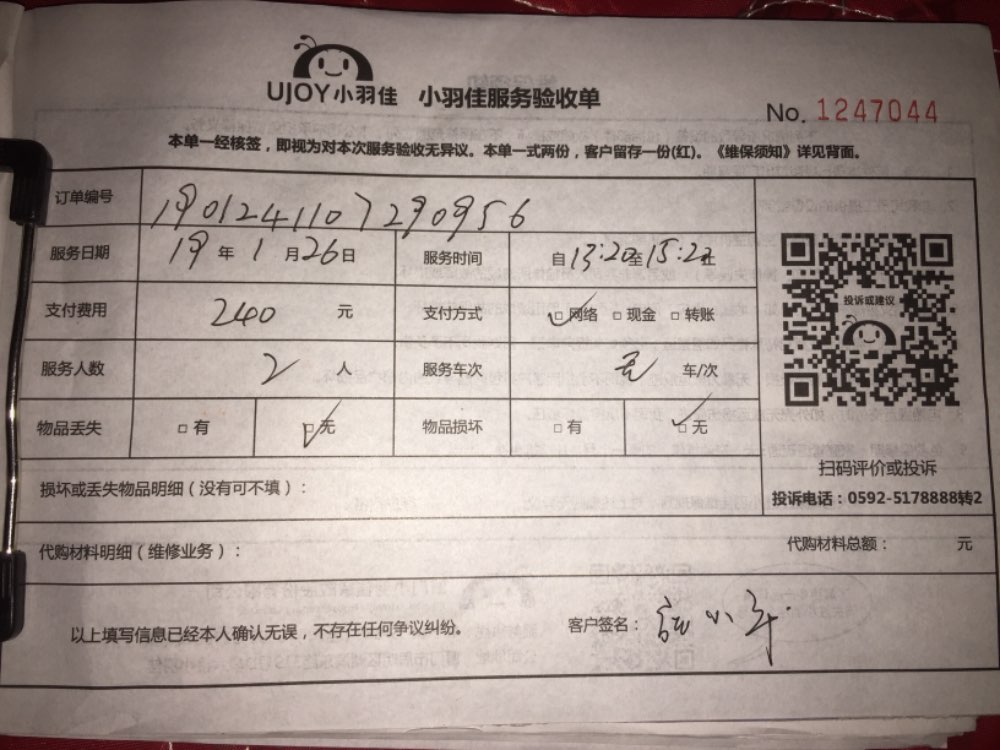 UJOY小羽佳 小羽佳服务验收单
No. 1247044
本单一经核签，即视为对本次服务验收无异议。本单一式两份，客户留存一份(红)。《维保须知》详见背面。
订单编号 1901241107290956
服务日期 19 年 1 月 26 日 服务时间 自 13:20 至 15:20 止
支付费用 240 元 支付方式 ☑ 网络 □ 现金 □ 转账
投诉或建议
服务人数 2 人 服务车次 无 车/次
物品丢失 □ 有 ☑ 无 物品损坏 □ 有 ☑ 无
扫码评价或投诉
损坏或丢失物品明细（没有可不填）：
投诉电话：0592-5178888转2
代购材料明细（维修业务）： 代购材料总额： 元
以上填写信息已经本人确认无误，不存在任何争议纠纷。 客户签名：